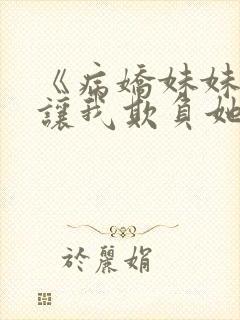 《病嬌妹妹
讓我欺負她
於麗娟